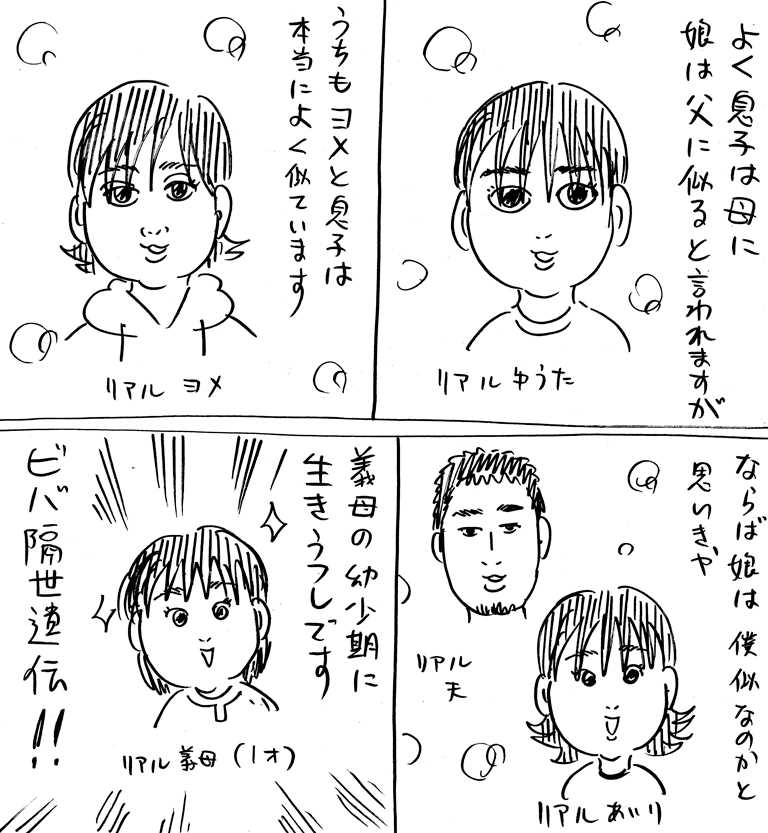 よく息子は母に
娘は父に似ると言われますが
リアルゆうた
うちもヨメと息子は
本当によく似ています
リアルヨメ
ならば娘は僕似なのかと
思いきや
リアル
夫
リアルあいり
義母の幼少期に
生きうつしです
リアル義母(1才)
ビバ隔世遺伝!!